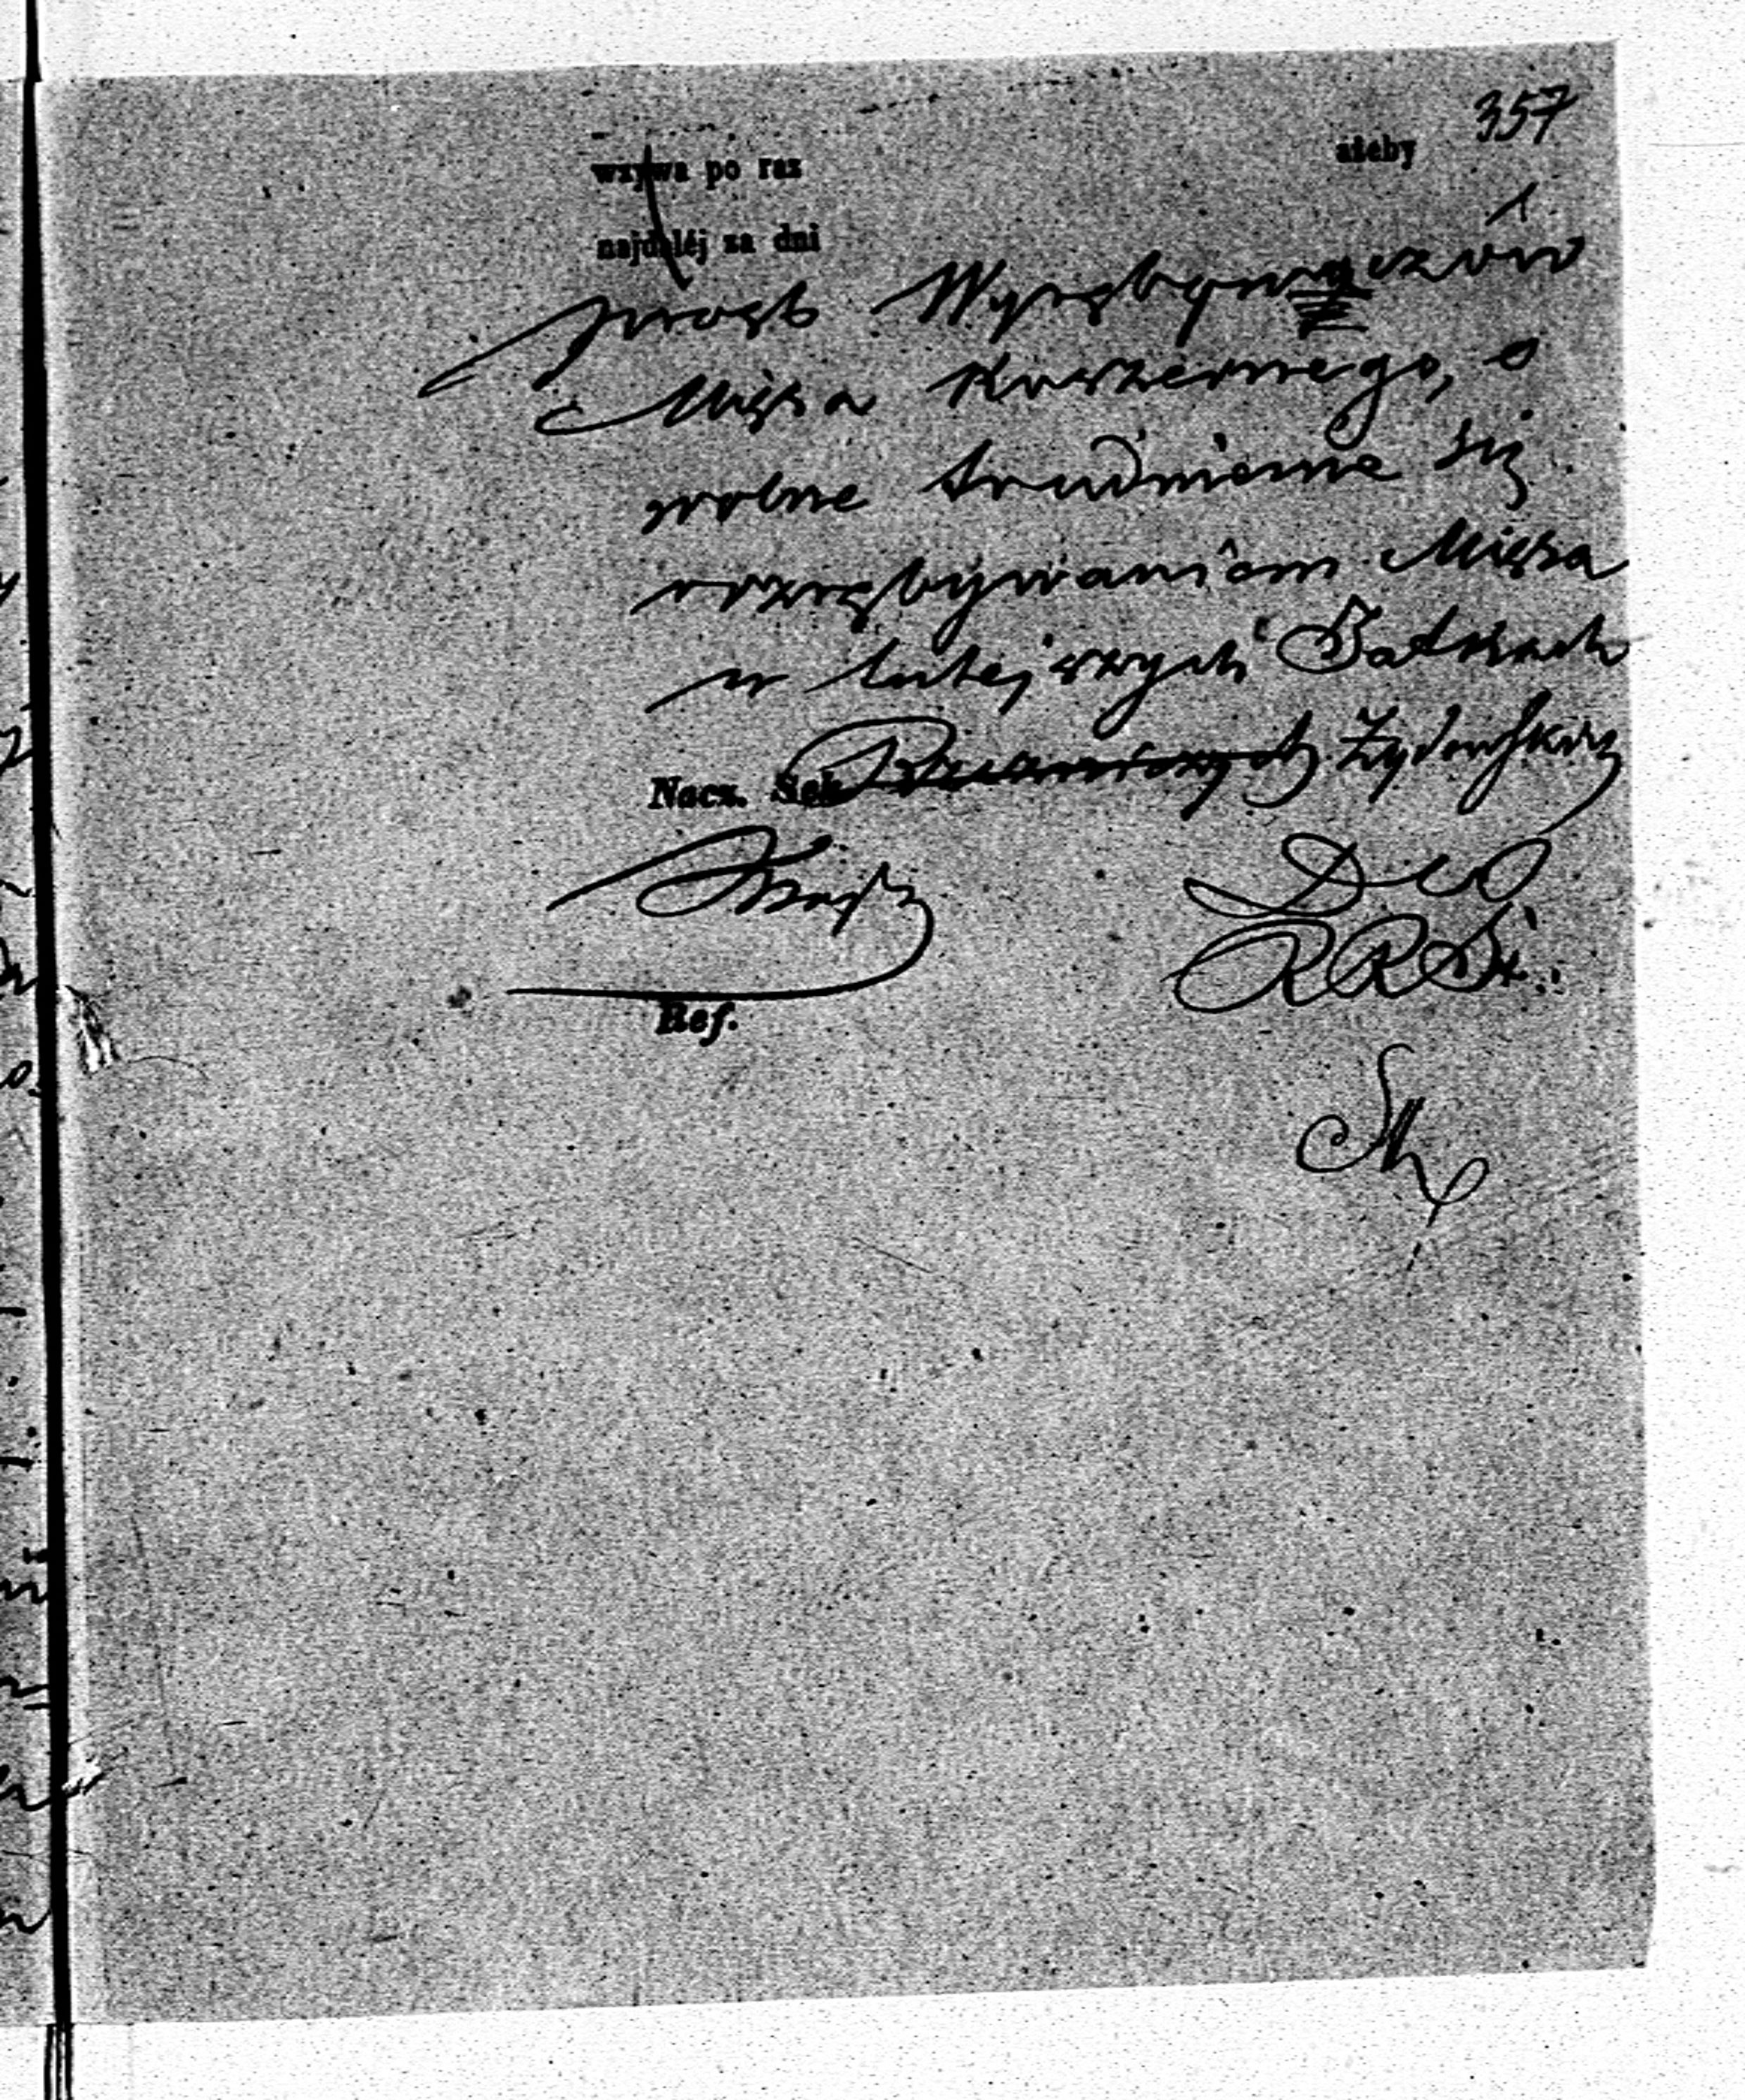 357
wzywa po raz ażeby
najdaléj za dni
prośb Wyrębywaczów
Mięsa Koszernego, o
wolne trudnienie się
rozrębywaniem Mięsa
w tutejszych Jatkach
Żydowskich
Nacz. Sek
Ref.